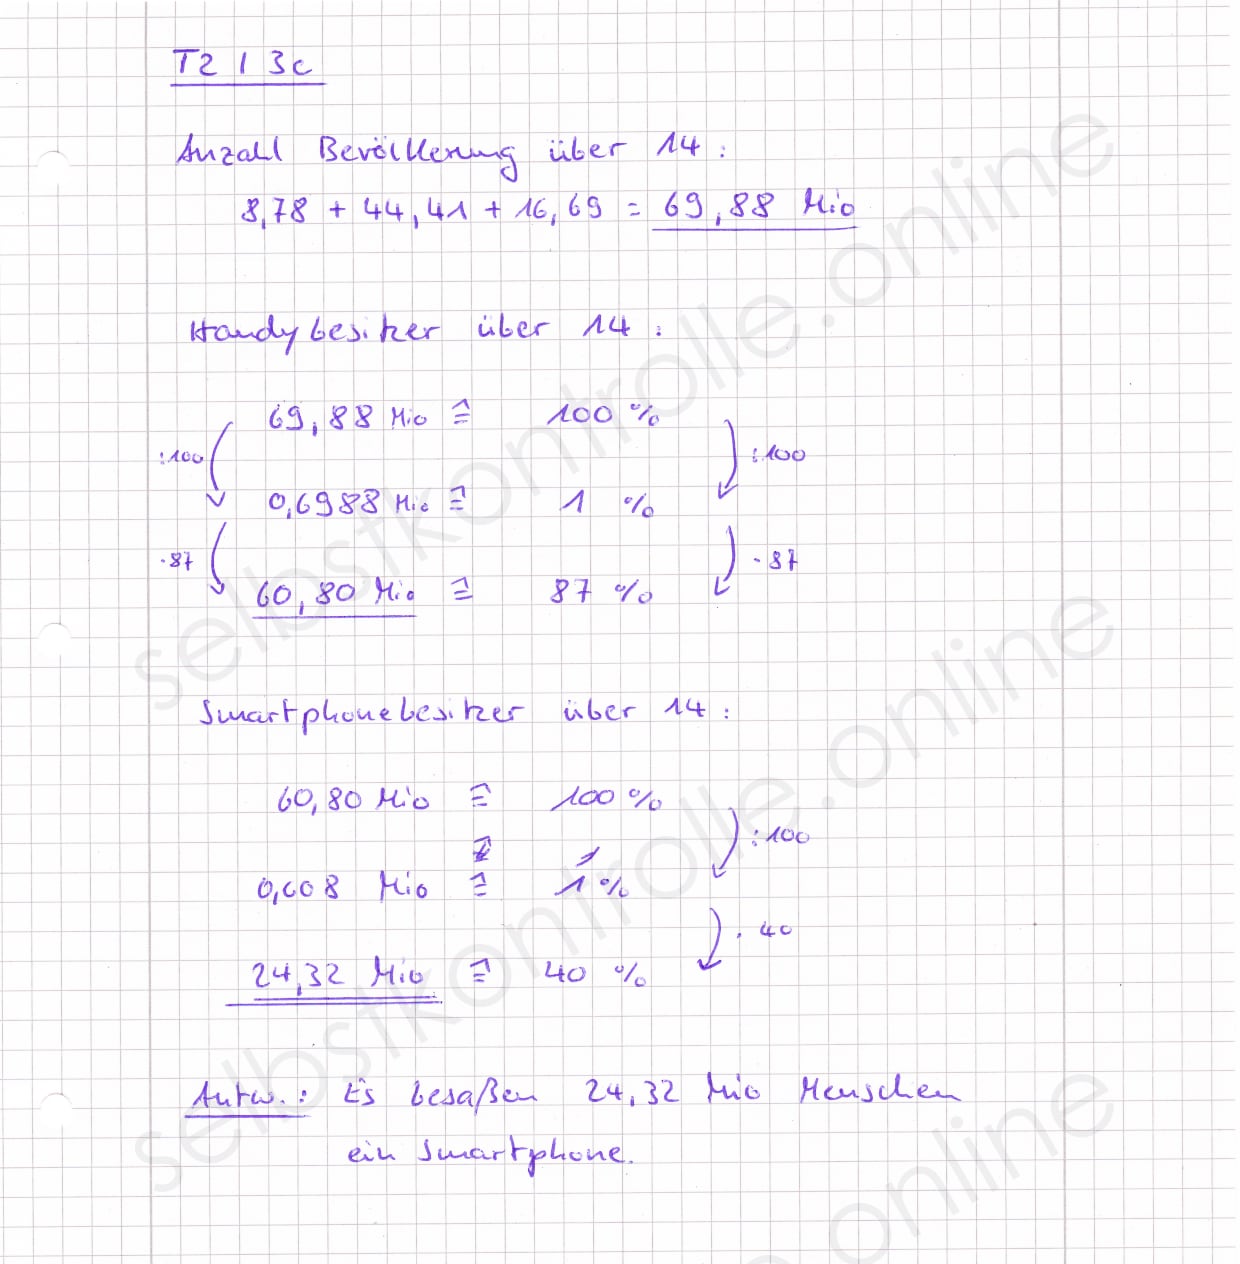 T2 / 3c
Anzahl Bevölkerung über 14 :
8,78 + 44,41 + 16,69 = 69,88 Mio
Handybesitzer über 14 :
69,88 Mio ≙ 100 %
:100 :100
0,6988 Mio ≙ 1 %
·87 ·87
60,80 Mio ≙ 87 %
Smartphonebesitzer über 14 :
60,80 Mio ≙ 100 %
:100
0,608 Mio ≙ 1 %
· 40
24,32 Mio ≙ 40 %
Antw.: Es besaßen 24,32 Mio Menschen
ein Smartphone.
selbstkontrolle.online
selbstkontrolle.online
online